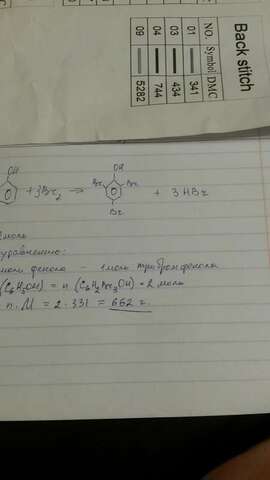 Back stitch
NO. Symbol DMC
01 341
03 434
04 744
09 5282
OH OH
+ 3Br₂ → Br Br + 3 HBr
Br
моль
уравнению:
моль фенола - 1 моль трибромфенола
(C₆H₅OH) = n (C₆H₂Br₃OH) = 2 моль
n. M = 2 · 331 = 662 г.